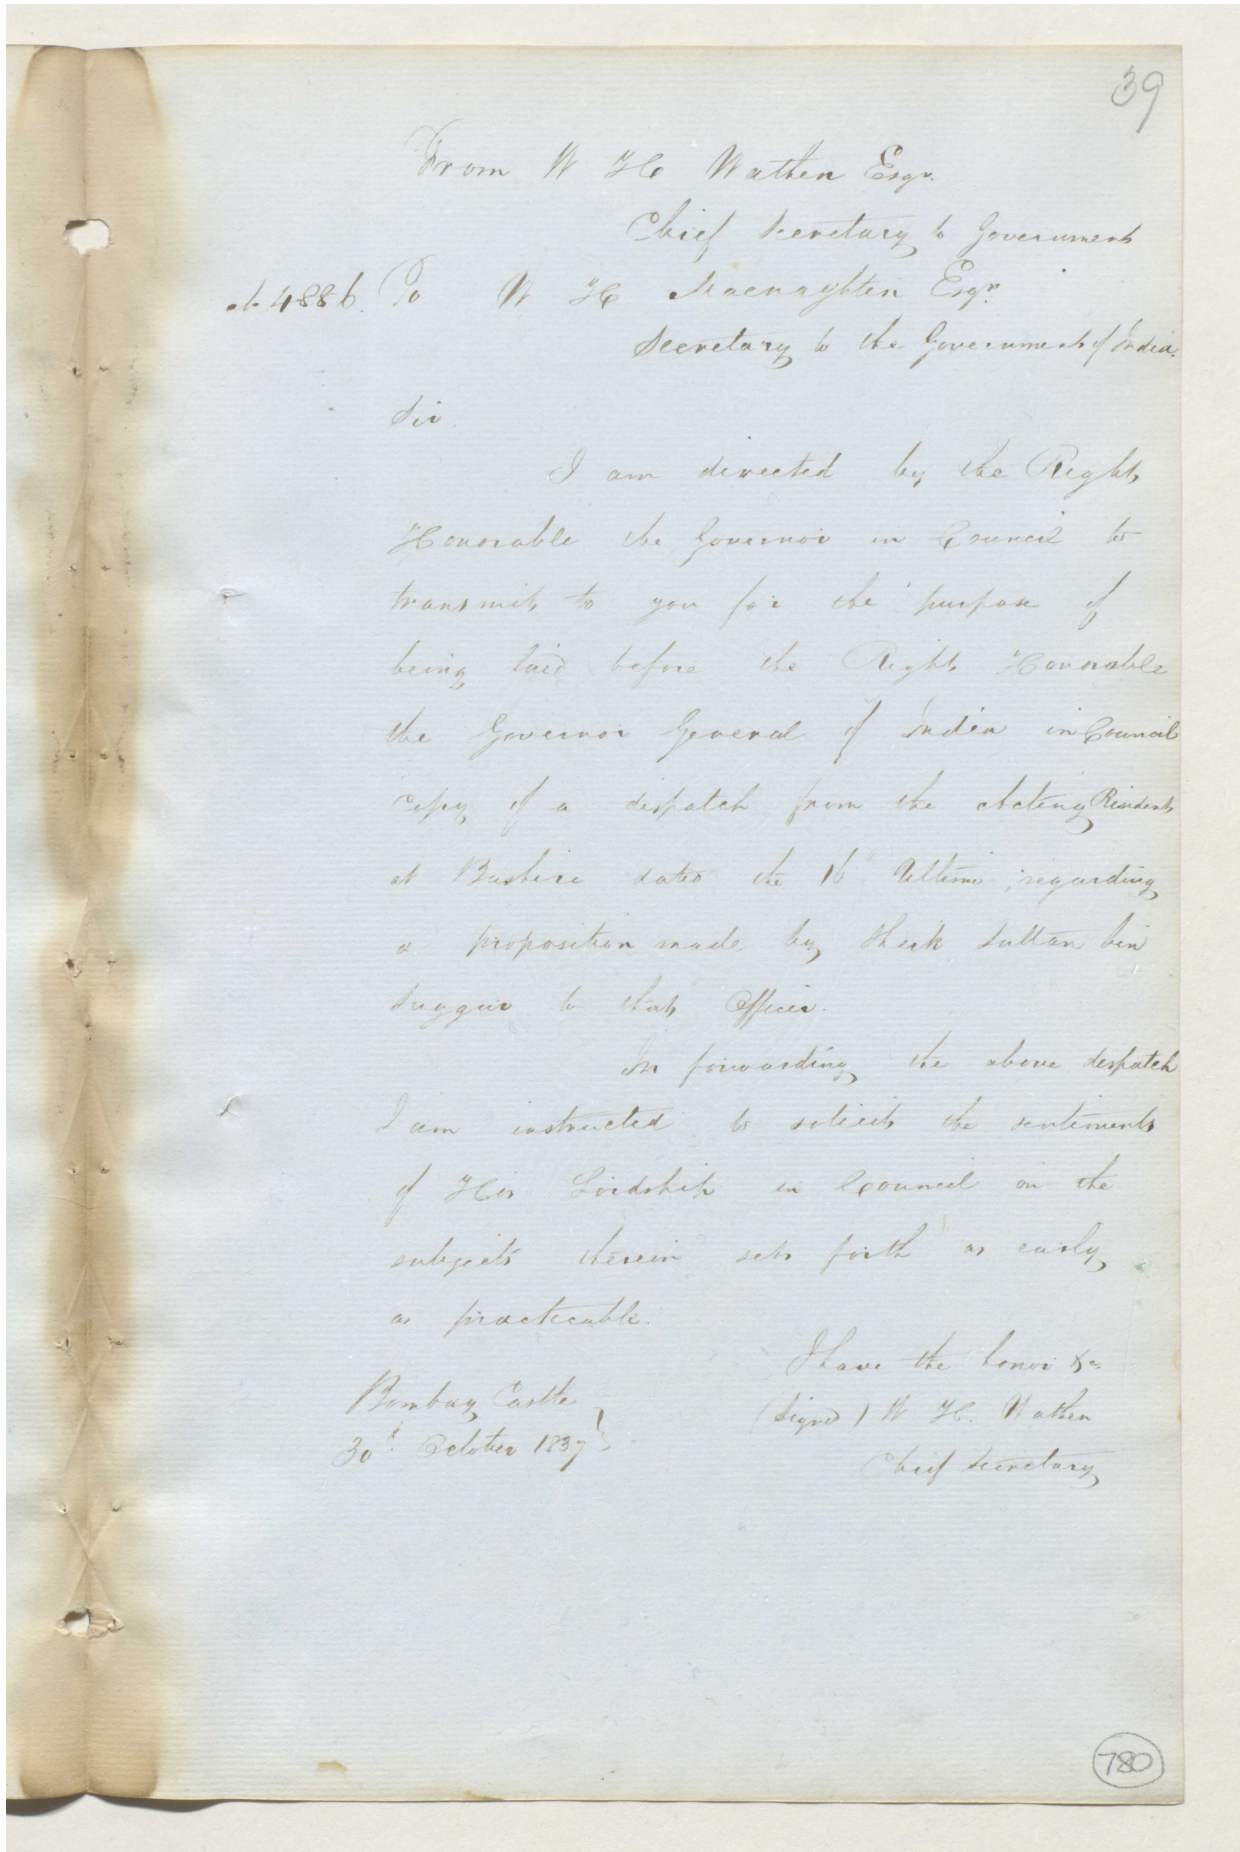 39
From W H Wathen Esqr.
Chief Secretary to Government
No 4886. To W H Macnaghten Esqr.
Secretary to the Government of India.
Sir.
I am directed by the Right
Honorable the Governor in Council to
transmit to you for the purpose of
being laid before the Right Honorable
the Governor General of India in Council
copy of a despatch from the Acting Resident
at Bushire dated the 16" Ultimo, regarding
a proposition made by Sheik Sultan bin
Suggur to that Officer.
In forwarding the above despatch
I am instructed to solicit the sentiments
of His Lordship in Council on the
subjects therein set forth as early
as practicable.
I have the honor &c
Bombay Castle
(Signed) W H. Wathen
30th. October 1837
Chief Secretary
780